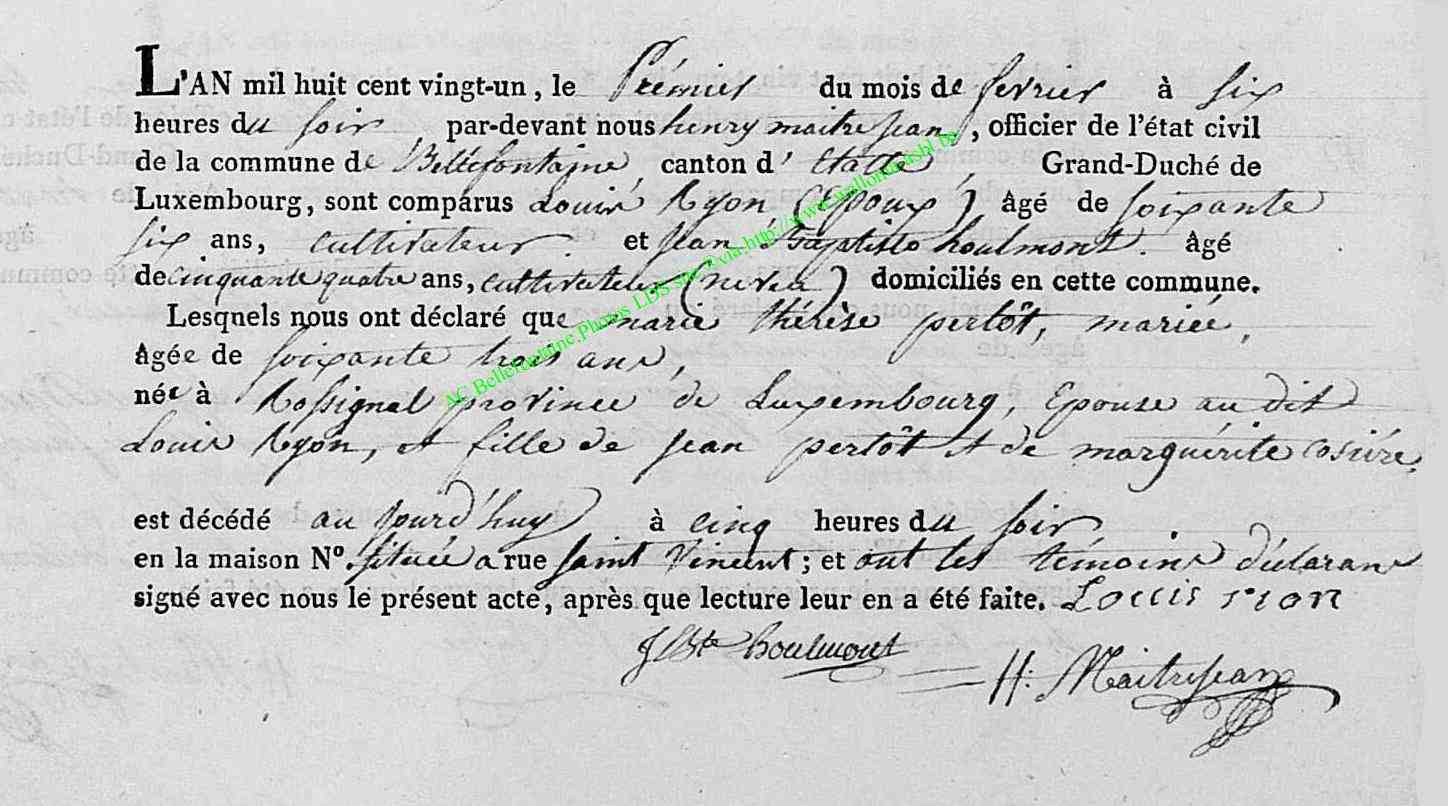 L'AN mil huit cent vingt-un, le Prémier du mois de fevrier à Six
heures du soir par-devant nous henry maitrejean, officier de l'état civil
de la commune de Bellefontaine, canton d'Etalle, Grand-Duché de
Luxembourg, sont comparus Louis Ryon (Epoux) âgé de soixante
six ans, cultivateur et jean Baptiste houlmont. âgé
de cinquante quatre ans, cultivateur (neveu) domiciliés en cette commune.
Lesqnels nous ont déclaré que marie thérèse pertôt, mariée,
âgée de soixante trois ans,
née à Rossignol province de Luxembourg, Epouse au dit
Louis Ryon, et fille de jean pertôt et de marguérite cosière,
est décédé au jourd'huy à cinq heures du soir
en la maison N°. située a rue saint Vincent; et ont les témoins déclarans
signé avec nous le présent acte, après que lecture leur en a été faite. Louis rion
J Bte houlmont
H: Maitrejean
AC Bellefontaine, Photos LDS sur Exla, http://www.wallonia-asbl.be